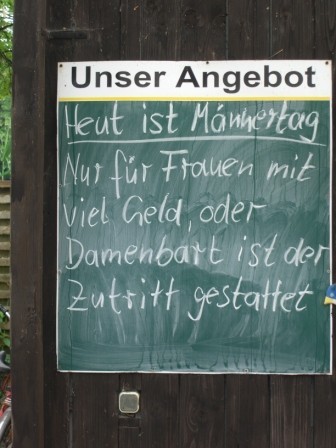 Unser Angebot
Heut ist Männertag
Nur für Frauen mit
viel Geld, oder
Damenbart ist der
Zutritt gestattet